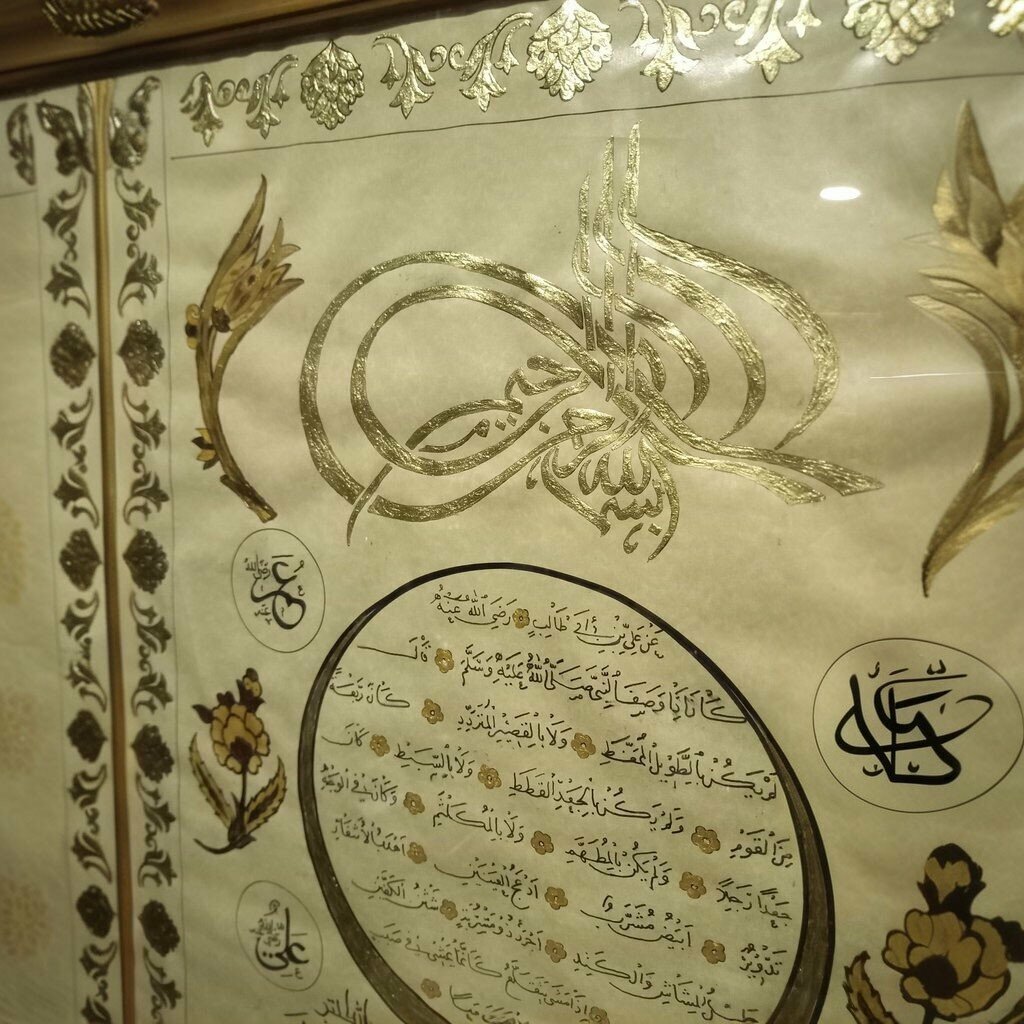 بسم الله الرحمن الرحيم
عمر رضي الله عنه
عَنْ عَلِيِّ بْنِ أَبِي طَالِبٍ رَضِيَ اللهُ عَنْهُ
كَانَ اِذَا وَصَفَ النَّبِيَّ صَلَّى اللهُ عَلَيْهِ وَسَلَّمَ قَالَ
لَمْ يَكُنْ بِالطَّوِيلِ الْمُمَّغِطِ وَلَا بِالْقَصِيرِ الْمُتَرَدِّدِ كَانَ رَبْعَةً
مِنَ الْقَوْمِ وَلَمْ يَكُنْ بِالْجَعْدِ الْقَطَطِ وَلَا بِالسَّبِطِ كَانَ
جَعْدًا رَجِلًا وَلَمْ يَكُنْ بِالْمُطَهَّمِ وَلَا بِالْمُكَلْثَمِ وَكَانَ فِي الْوَجْهِ
تَدْوِيرٌ اَبْيَضُ مُشْرَبٌ اَدْعَجُ الْعَيْنَيْنِ اَهْدَبُ الْاَشْفَارِ
جَلِيلُ الْمُشَاشِ وَالْكَتَدِ اَجْرَدُ ذُو مَسْرُبَةٍ شَثْنُ الْكَفَّيْنِ
اِذَا مَشَى يَتَقَلَّعُ كَاَنَّمَا يَمْشِي فِي صَبَبٍ
علي رضي الله عنه